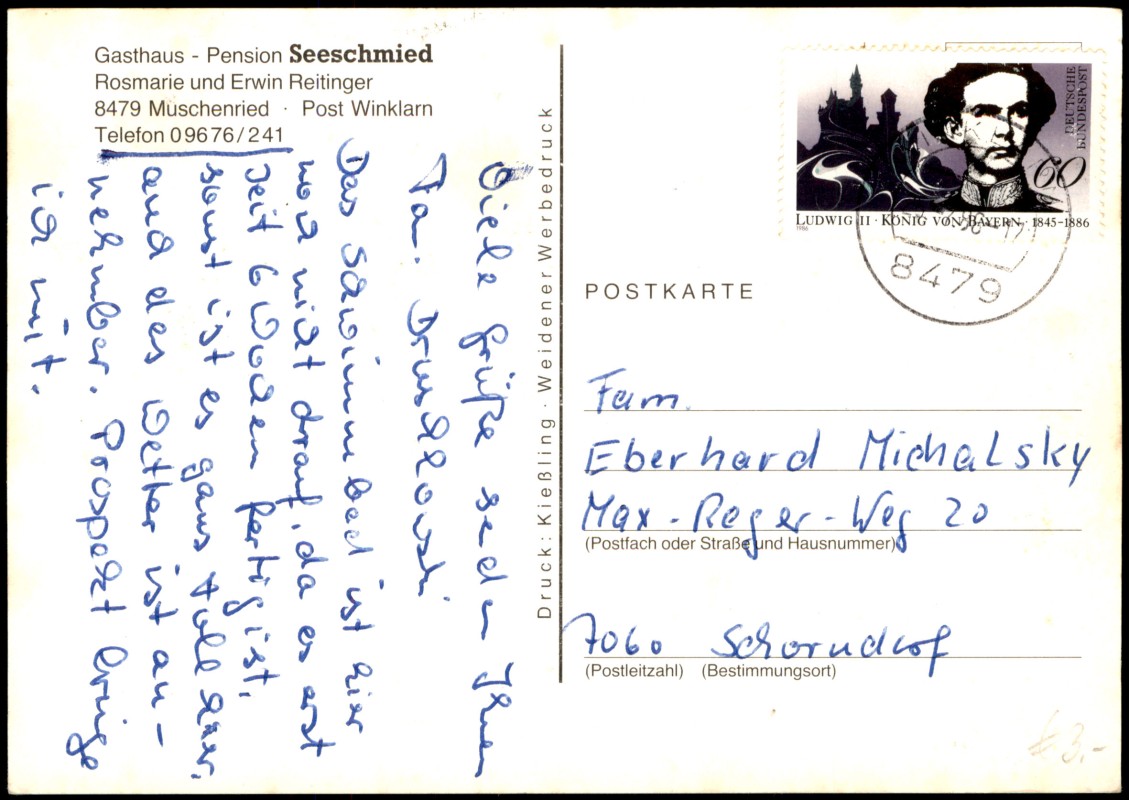 Gasthaus - Pension Seeschmied
Rosmarie und Erwin Reitinger
8479 Muschenried · Post Winklarn
Telefon 09676/241
Viele Grüße senden Ihnen
Fam.
Das Schwimmbad ist hier
noch nicht drauf, da es erst
seit 6 Wochen fertig ist.
sonst ist es ganz toll hier.
und das Wetter ist an-
nehmbar. Prospekt bringe
ich mit.
Druck: Kießling · Weidener Werbedruck
DEUTSCHE
BUNDESPOST
60
LUDWIG II · KÖNIG VON BAYERN · 1845-1886
1986
8479
POSTKARTE
Fam.
Eberhard Michalsky
Max-Reger-Weg 20
(Postfach oder Straße und Hausnummer)
7060 Schorndorf
(Postleitzahl) (Bestimmungsort)
€ 3.-